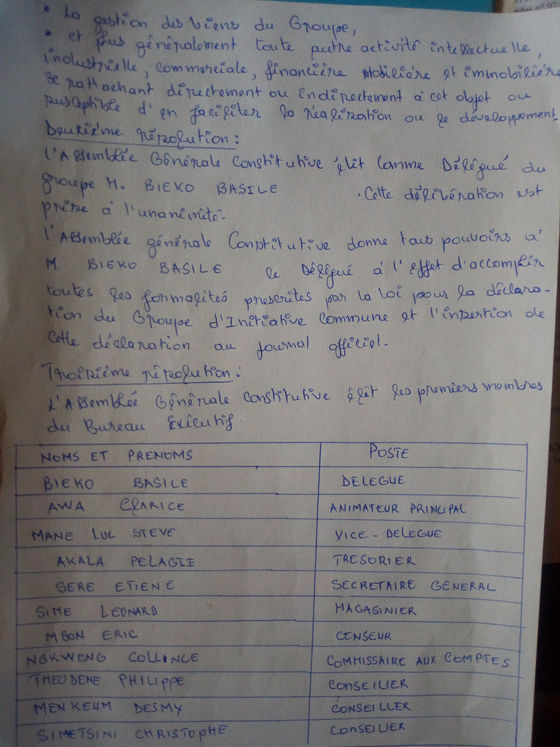 • La gestion des biens du Groupe,
• et plus généralement toute autre activité intellectuelle,
industrielle, commerciale, financière mobilière et immobilière
se rattachant directement ou indirectement à cet objet ou
susceptible d'en faciliter la réalisation ou le développement
Deuxième résolution :
L'Assemblée Générale Constitutive élit comme Délégué du
groupe M. BIEKO BASILE . Cette délibération est
prise à l'unanimité.
L'Assemblée générale Constitutive donne tous pouvoirs à
M. BIEKO BASILE le Délégué à l'effet d'accomplir
toutes les formalités prescrites par la loi pour la déclara-
tion du Groupe d'Initiative Commune et l'insertion de
Cette déclaration au journal officiel.
Troisième résolution :
L'Assemblée Générale Constitutive élit les premiers membres
du Bureau Exécutif.
NOMS ET PRENOMS POSTE
BIEKO BASILE DELEGUE
AWA CLARICE ANIMATEUR PRINCIPAL
MANE LUC STEVE VICE - DELEGUE
AKALA PELAGIE TRESORIER
SERE ETIENE SECRETAIRE GENERAL
SIME LEONARD MAGASINIER
MBON ERIC CENSEUR
NGKWENG COLLINCE COMMISSAIRE AUX COMPTES
THEODENE PHILIPPE CONSEILLER
MENKEUM DESMY CONSEILLER
SIMETSINI CHRISTOPHE CONSEILLER